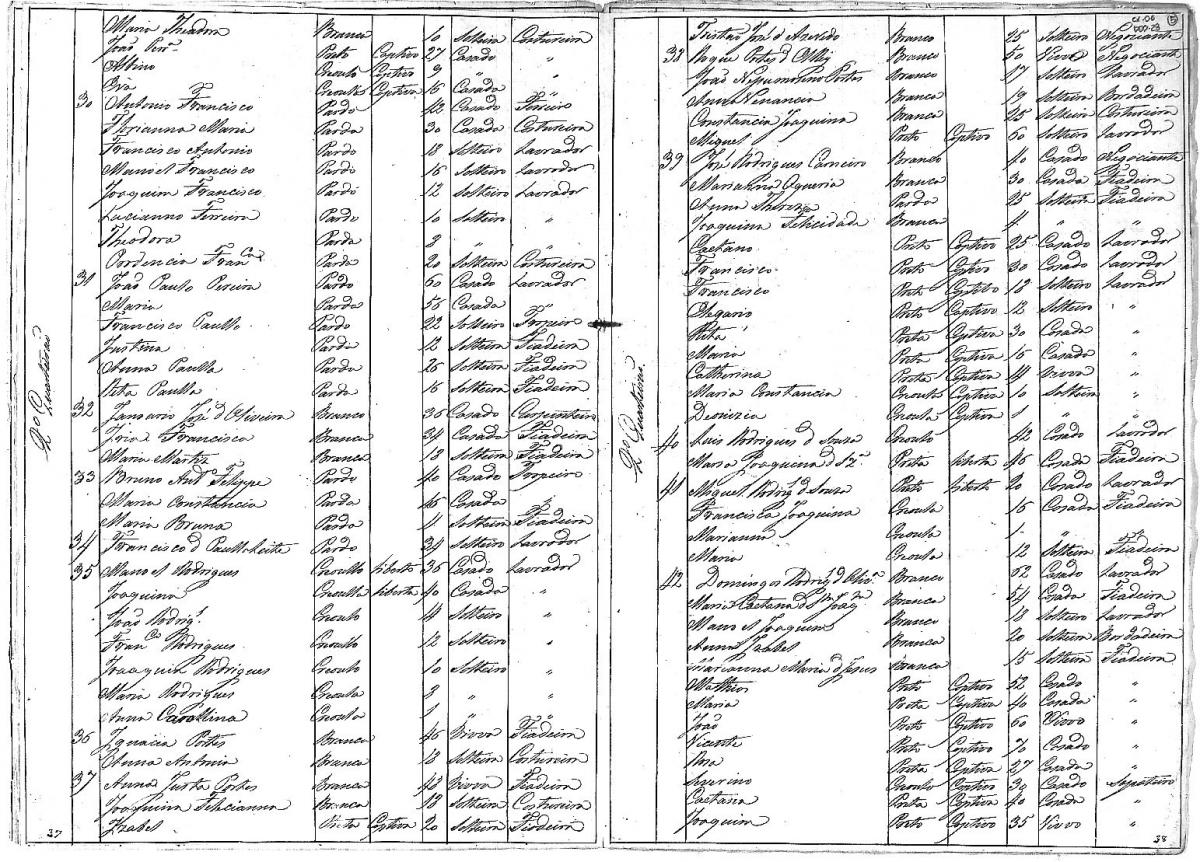 Maria Theadora Branca 10 Solteira Costureira
João Per.ª Preto Captivo 27 Casado "
Albino Crioulo Captivo 9 " "
Eva Crioula Captiva 16 Casada "
30 Antonio Francisco Pardo 42 Casado Ferreiro
Florianna Maria Parda 30 Casada Costureira
Francisco Antonio Pardo 18 Solteiro Lavrador
Manoel Francisco Pardo 16 Solteiro Lavrador
Joaquim Francisco Pardo 12 Solteiro Lavrador
Lucianno Ferreira Pardo 10 Solteiro "
Theodora Parda 3 " "
Pordencia Fran.ca Parda 20 Solteira Costureira
31 João Paulo Pereira Pardo 60 Casado Lavrador
Maria Parda 56 Casada "
Francisco Paullo Pardo 22 Solteiro Tropeiro
Justina Parda 12 Solteira Fiadeira
Anna Paulla Parda 26 Solteira Fiadeira
Rita Paulla Parda 16 Solteira Fiadeira
2º Quarteirão
32 Januario José d Oliveira Branco 36 Casado Carpinteiro
Francisca Branca 34 Casada Fiadeira
Maria Martiz Branca 13 Solteira Fiadeira
33 Bruno Ant.o Felippe Pardo 40 Casado Tropeiro
Maria Constancia Parda 46 Casada "
Maria Bruna Parda 4 Solteira Fiadeira
34 Francisco d Paulla Leite Pardo 34 Solteiro Lavrador
35 Manoel Rodrigues Crioullo Liberto 36 Casado Lavrador
Joaquina Crioulla Liberta 40 Casada "
João Rodrig.s Crioulo 14 Solteiro "
Fran.co Rodrigues Crioullo 12 Solteiro "
Joaquim Rodrigues Crioulo 10 Solteiro "
Maria Rodrigues Crioula 3 " "
Anna Carollina Crioula 1 " "
36 Ignacia Portes Branca 46 Viuva Fiadeira
Anna Antonia Branca 18 Solteira Costureira
37 Anna Justa Portes Branca 48 Viuva Fiadeira
Joaquina Felicianna Branca 18 Solteira Costureira
Izabel Preta Captiva 20 Solteira Fiadeira
37
5
Tristão José d Azevedo Branco 25 Solteiro Negociante
38 Roque Portes d Branco 50 Viuvo Negociante
João Nepumoceno Portes Branco 17 Solteiro Lavrador
Anna Venancia Branca 19 Solteira Bordadeira
Constancia Joaquina Branca 25 Solteira Costureira
Miguel Preto Captivo 60 Solteiro Lavrador
39 José Rodrigues Carneiro Branco 40 Casado Negociante
Marsalina Branca 30 Casada Fiadeira
Anna Thereza Parda 25 Solteira Fiadeira
Joaquina Felicidada Branca 4 " "
Caetano Preto Captivo 25 Casado Lavrador
Francisco Preto Captivo 30 Casado Lavrador
Francisco Preto Captivo 18 Solteiro Lavrador
Olegario Preto Captivo 12 Solteiro "
Rita Preta Captiva 30 Casada "
Maria Preta Captiva 16 Casada "
Catherina Preta Captiva 44 Viuva "
Maria Constancia Crioula Captiva 10 Solteira "
Deonizia Crioula Captiva 1 " "
2º Quarteirão.
40 Luis Rodrigues d Souza Crioulo 42 Casado Lavrador
Maria Joaquina d Sz.ª Preta Liberta 46 Casada Fiadeira
41 Miguel Rodrig.s d Souza Preto Liberto 20 Casado Lavrador
Francisca Joaquina Crioula 16 Casada Fiadeira
Marianna Crioula 1 " "
Maria Crioula 12 Solteira Fiadeira
42 Domingos Rodrig.s d Oliv.ª Branco 62 Casado Lavrador
Maria Caetana Branca 54 Casada Fiadeira
Manoel Joaquim Branco 18 Solteiro Lavrador
Anna Izabel Branca 20 Solteira Bordadeira
Marianna Maria d Jesus Branca 15 Solteira Fiadeira
Matheos Preto Captivo 52 Casado "
Maria Preta Captiva 40 Casada "
João Preto Captivo 60 Viuvo "
Vicente Preto Captivo 70 Casado "
Roza Preta Captiva 27 Casada "
Severino Crioulo Captivo 30 Casado Sapateiro
Caetana Preta Captiva 40 Casada "
Joaquim Preto Captivo 35 Viuvo "
38